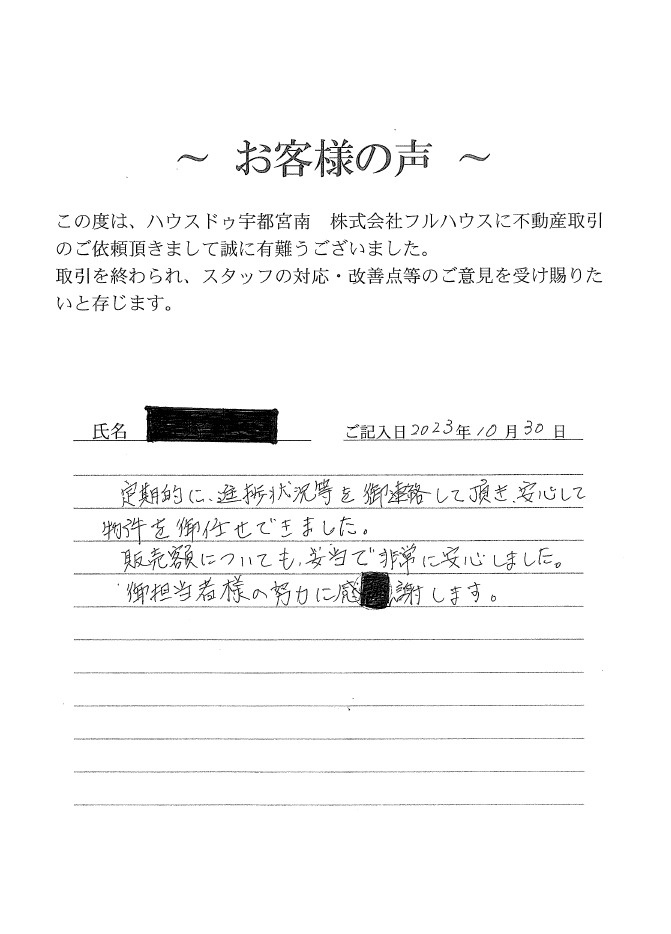 ～ お客様の声 ～
この度は、ハウスドゥ宇都宮南　株式会社フルハウスに不動産取引
のご依頼頂きまして誠に有難うございました。
取引を終わられ、スタッフの対応・改善点等のご意見を受け賜りた
いと存じます。
氏名　ご記入日2023年10月30日
定期的に、進捗状況等を御連絡して頂き、安心して
物件を御任せできました。
販売額についても、妥当で非常に安心しました。
御担当者様の努力に感謝します。